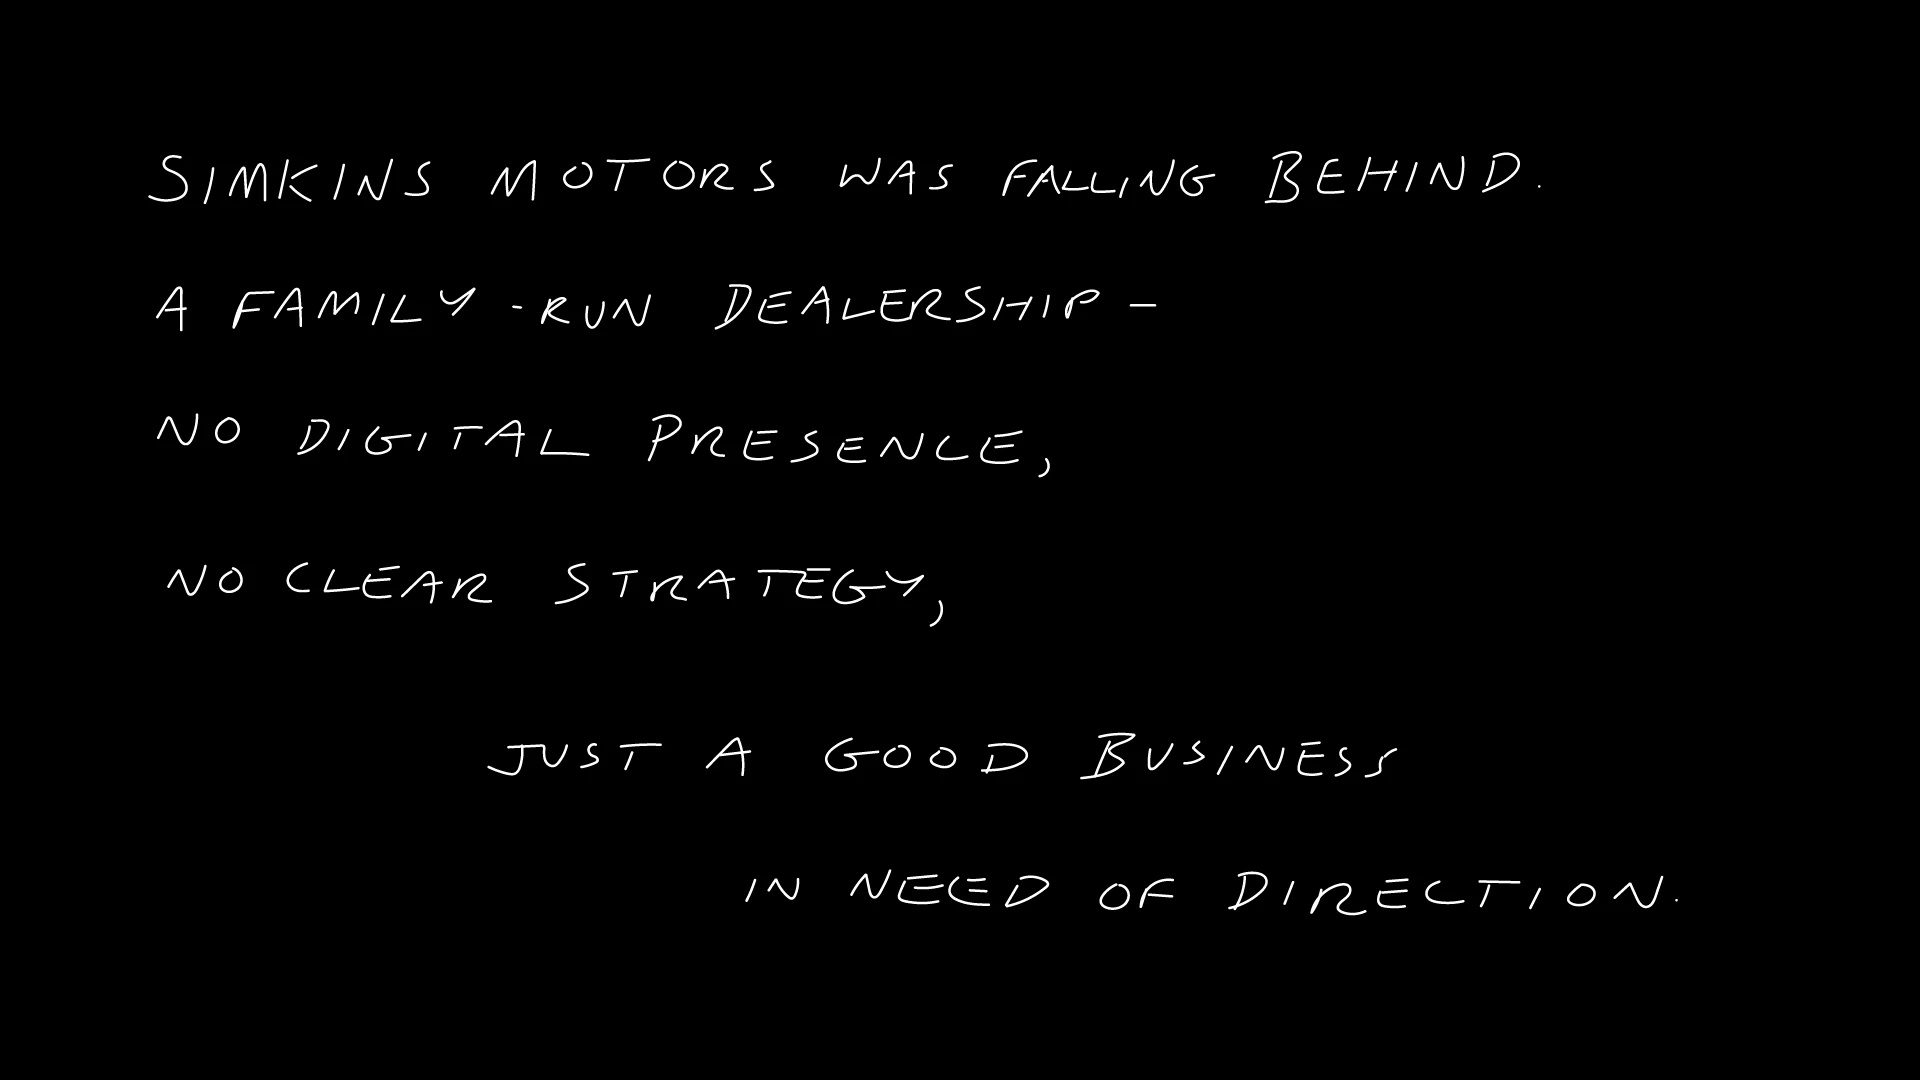 SIMKINS MOTORS WAS FALLING BEHIND.
A FAMILY-RUN DEALERSHIP -
NO DIGITAL PRESENCE,
NO CLEAR STRATEGY,
JUST A GOOD BUSINESS
IN NEED OF DIRECTION.